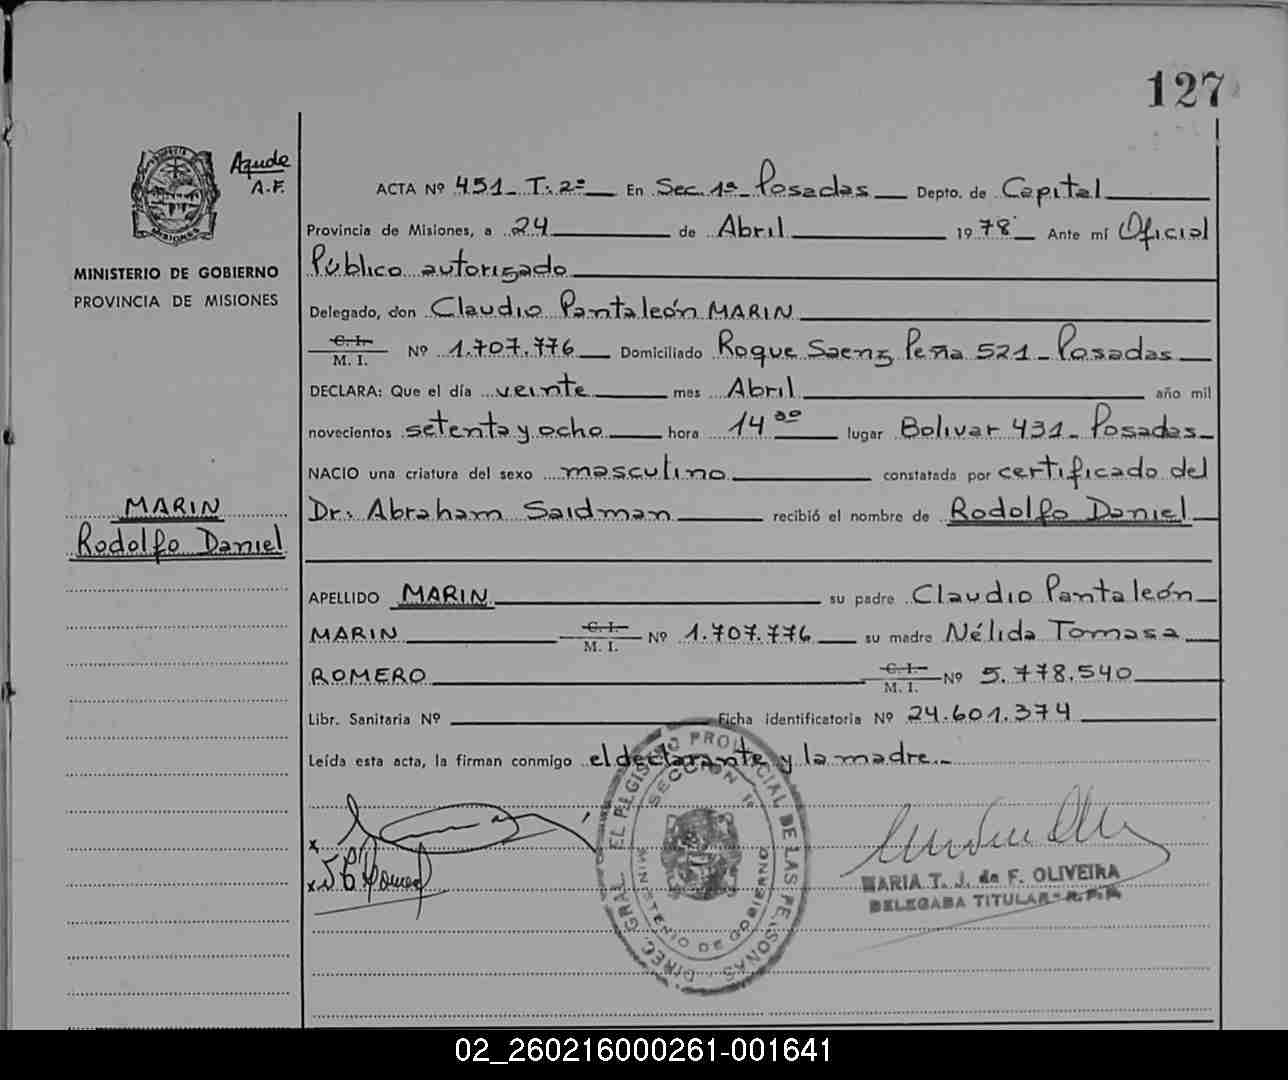 127
Aqude
A.F.
PROVINCIA DE MISIONES
MINISTERIO DE GOBIERNO
PROVINCIA DE MISIONES
ACTA Nº 451_ T: 2º En Sec. 1ª Posadas Depto. de Capital
Provincia de Misiones, a 24 de Abril 19 78 Ante mí Oficial
Público autorizado
Delegado, don Claudio Pantaleón MARIN
C. I.
M. I. Nº 1.707.776 Domiciliado Roque Saenz Peña 521 - Posadas
DECLARA: Que el día veinte mes Abril año mil
novecientos setenta y ocho hora 14 lugar Bolivar 431 - Posadas
NACIO una criatura del sexo masculino constatada por certificado del
Dr. Abraham Saidman recibió el nombre de Rodolfo Daniel
MARIN
Rodolfo Daniel
APELLIDO MARIN su padre Claudio Pantaleón
MARIN C. I. M. I. Nº 1.707.776 su madre Nélida Tomasa
ROMERO C. I. M. I. Nº 5.778.540
Libr. Sanitaria Nº Ficha identificatoria Nº 24.601.374
Leída esta acta, la firman conmigo el declarante y la madre.
DIREC. GRAL. EL REGISTRO PROVINCIAL DE LAS PERSONAS
SECCION 1ª
MINISTERIO DE GOBIERNO
MARIA T. J. de F. OLIVEIRA
DELEGADA TITULAR - R.P.P.
02_260216000261-001641